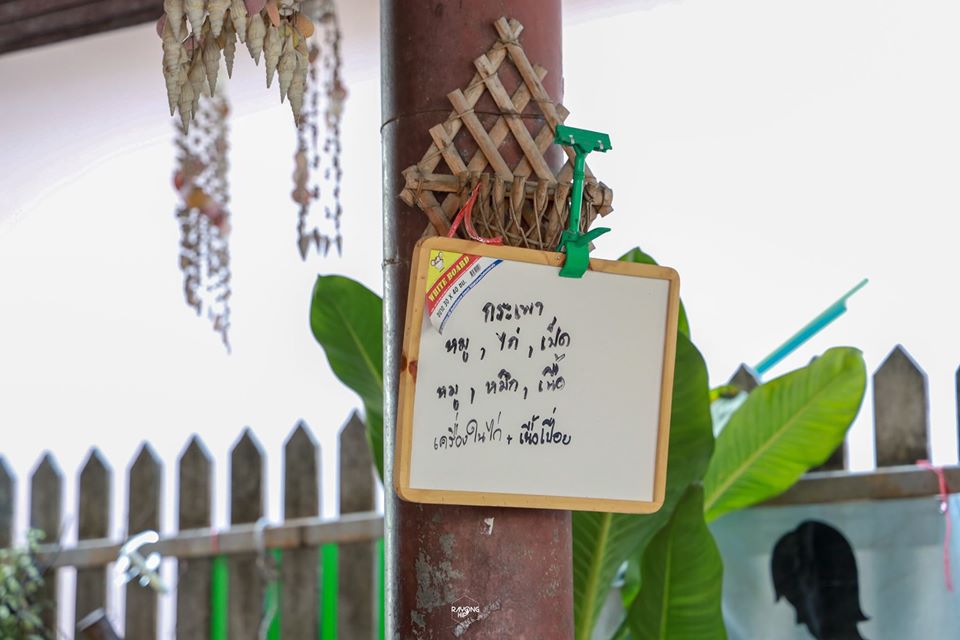 WHITE BOARD
30 X 40 ซม.
กระเพา
หมู, ไก่, เป็ด
หมู, หมึก, เนื้อ
เครื่องในไก่ + เนื้อเปื่อย
RAYONG
HIP